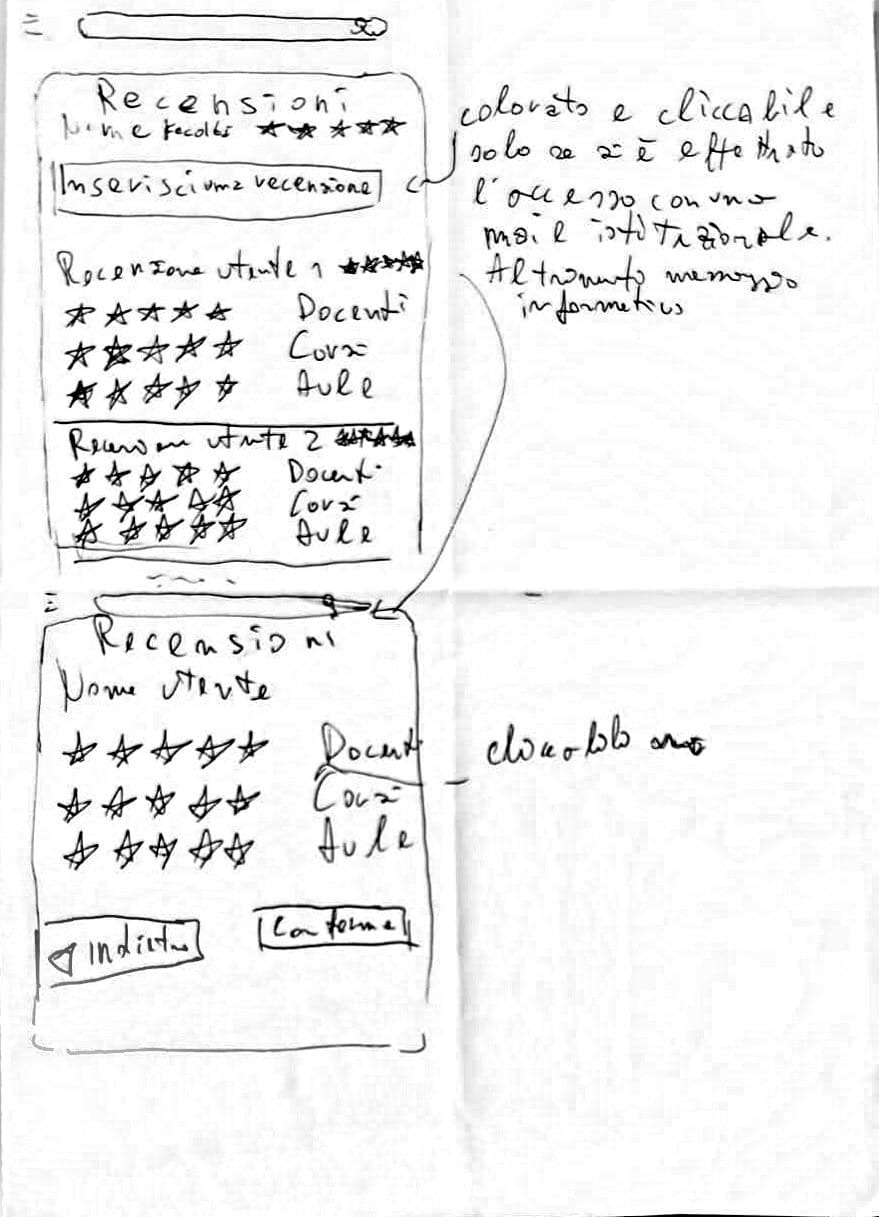 Recensioni
Nome Facoltà ★★★★★
Inserisci una recensione
colorato e cliccabile
solo se si è effettuato
l'accesso con una
mail istituzionale.
Altrimenti messaggio
informativo
Recensione utente 1 ★★★★★
★★★★★ Docenti
★★★★★ Corsi
★★★★★ Aule
Recensione utente 2 ★★★★★
★★★★★ Docenti
★★★★★ Corsi
★★★★★ Aule
Recensioni
Nome utente
★★★★★ Docenti
★★★★★ Corsi
★★★★★ Aule
Indietro
Conferma